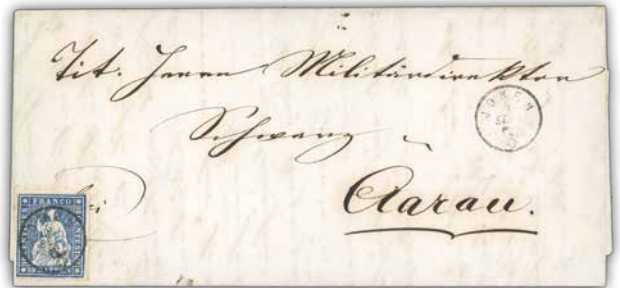 Tit. Herrn Militärdirektor
Schwarz in
bei
Aarau.
FRANCO